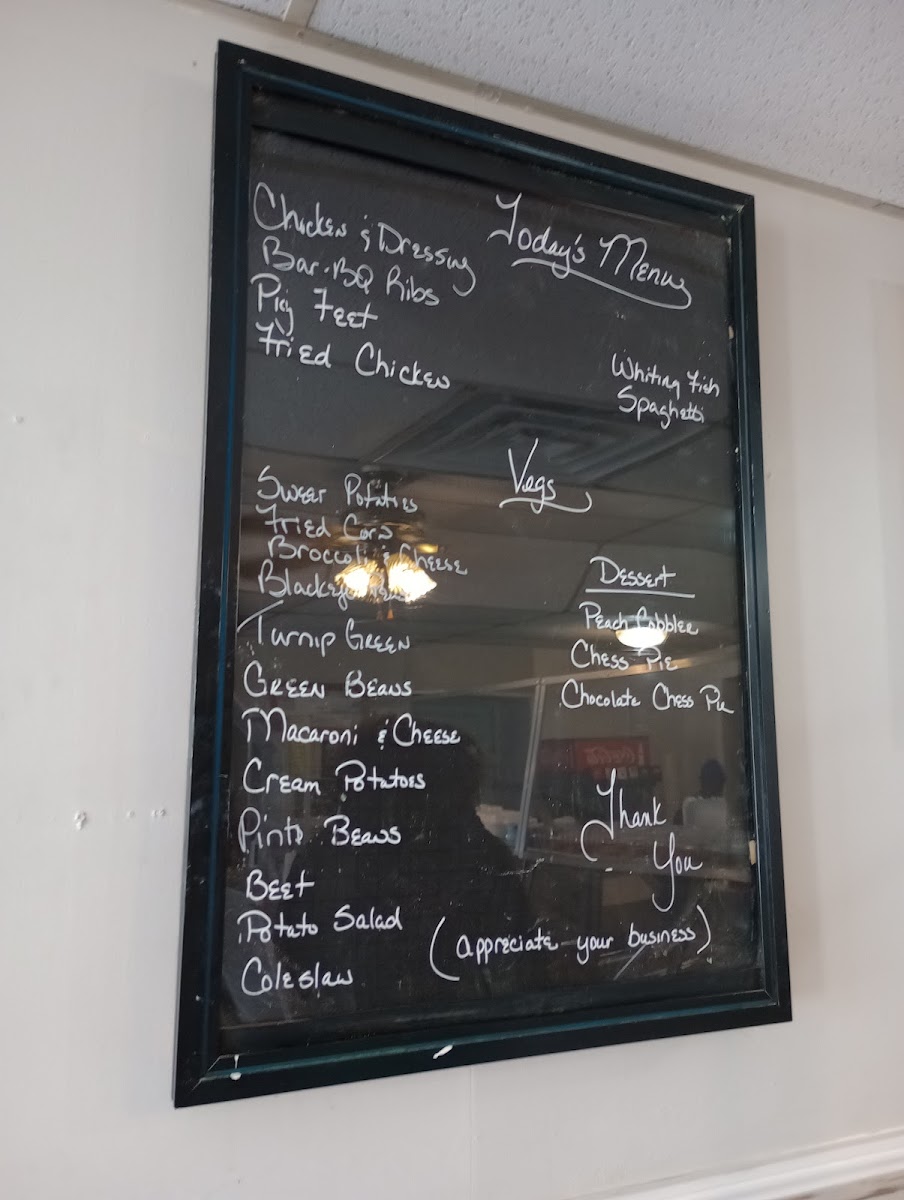 Today's Menu
Chicken & Dressing
Bar-BQ Ribs
Pig Feet
Fried Chicken
Whiting Fish
Spaghetti
Vegs
Sweet Potatoes
Fried Corn
Broccoli & Cheese
Blackeye Peas
Turnip Green
Green Beans
Macaroni & Cheese
Cream Potatoes
Pinto Beans
Beet
Potato Salad
Coleslaw
Dessert
Peach Cobbler
Chess Pie
Chocolate Chess Pie
Thank
You
(appreciate your business)